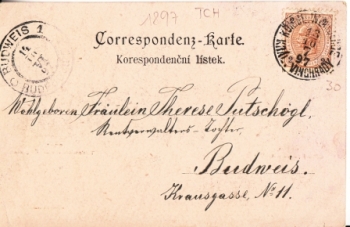 1897 TCH
BUDWEIS 1
Correspondenz-Karte.
Korespondenční lístek.
97
30
Wohlgeboren Fräulein Therese Putschögl.
Rentverwalters-Tochter
Budweis.
Krausgasse, No 11.